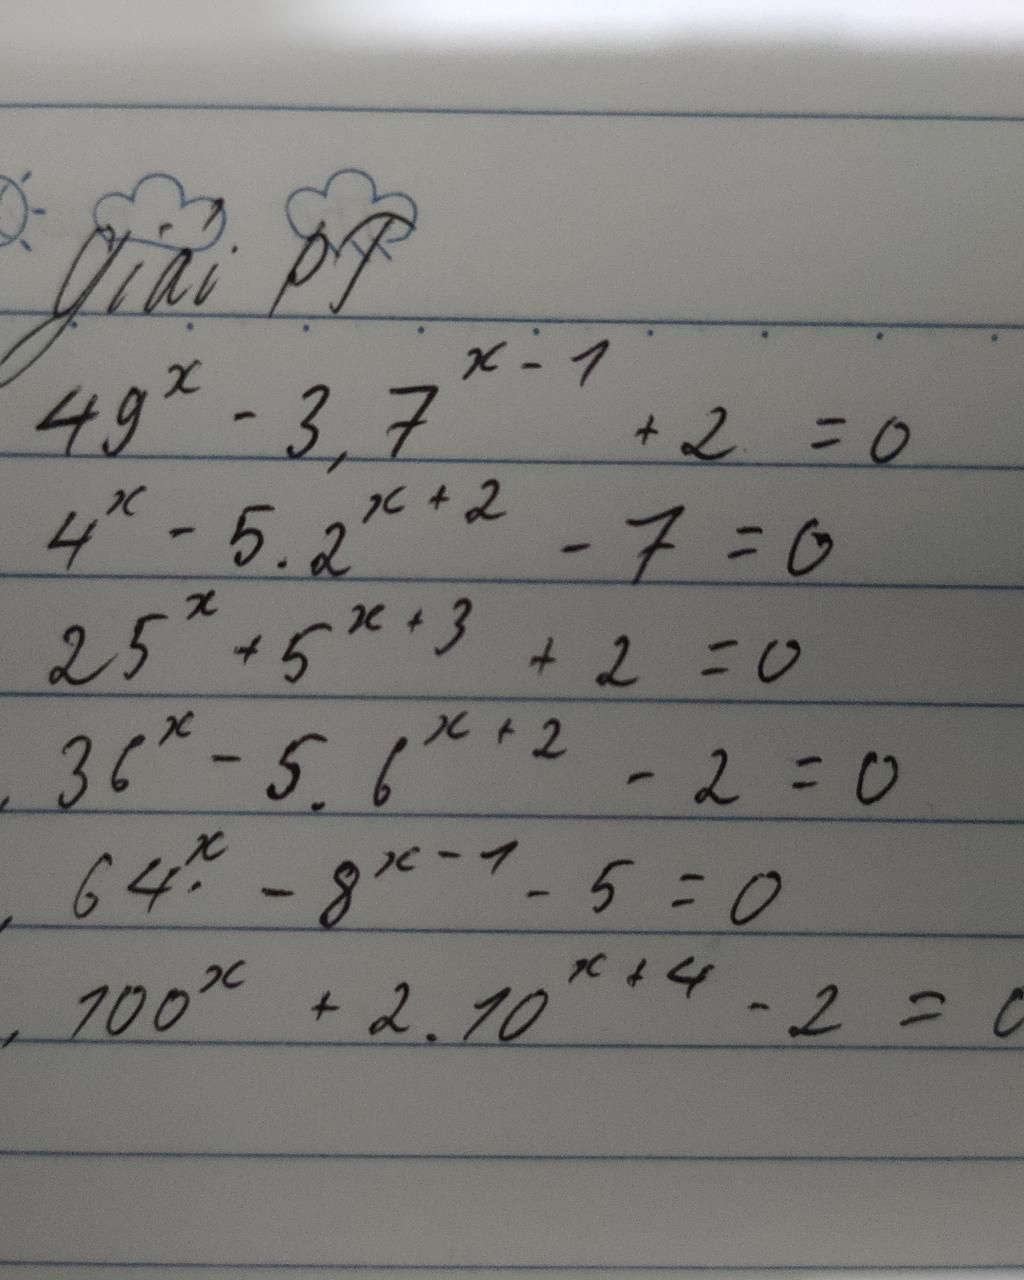 Giải PT
49^x - 3,7^{x-1} + 2 = 0
4^x - 5.2^{x+2} - 7 = 0
25^x + 5^{x+3} + 2 = 0
, 36^x - 5.6^{x+2} - 2 = 0
, 64.^x - 8^{x-1} - 5 = 0
, 100^x + 2.10^{x+4} - 2 = 0